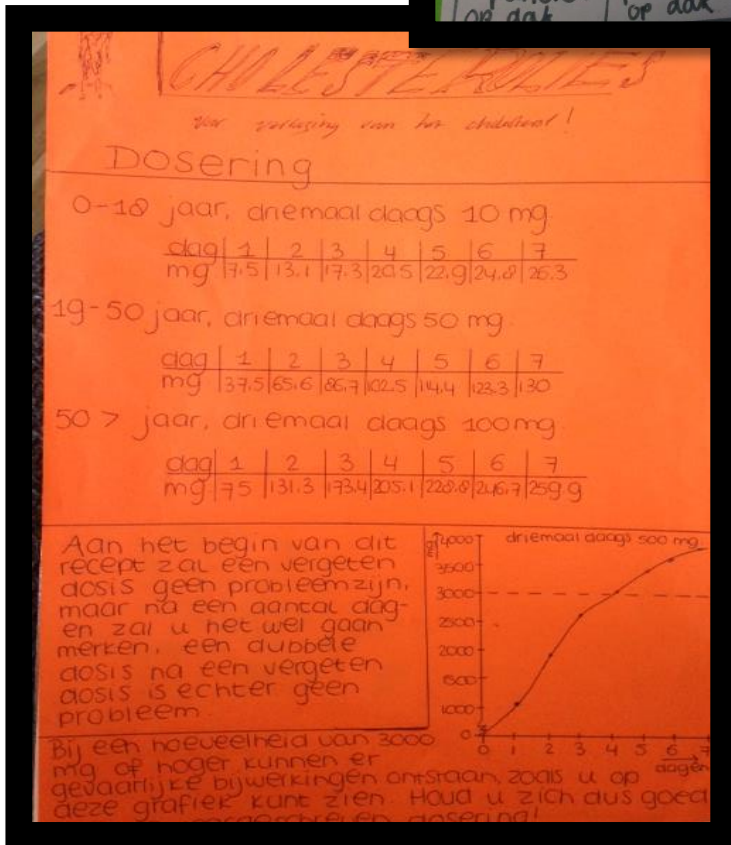 op dak op dak
CHOLESTEROLIES
Voor verlaging van het cholesterol!
Dosering
0-18 jaar, driemaal daags 10 mg.
dag 1 2 3 4 5 6 7
mg 7.5 13.1 17.3 20.5 22.9 24.8 26.3
19-50 jaar, driemaal daags 50 mg.
dag 1 2 3 4 5 6 7
mg 37.5 65.6 86.7 102.5 114.4 123.3 130
50 > jaar, driemaal daags 100mg.
dag 1 2 3 4 5 6 7
mg 75 131.3 173.4 205.1 228.8 246.7 259.9
Aan het begin van dit
recept zal een vergeten
dosis geen probleem zijn,
maar na een aantal dag-
en zal u het wel gaan
merken, een dubbele
dosis na een vergeten
dosis is echter geen
probleem.
driemaal daags 500 mg.
mg
4000
3500
3000
2500
2000
1500
1000
0
0 1 2 3 4 5 6 7
dagen
Bij een hoeveelheid van 3000
mg of hoger kunnen er
gevaarlijke bijwerkingen ontstaan, zoals u op
deze grafiek kunt zien. Houd u zich dus goed
dosering!